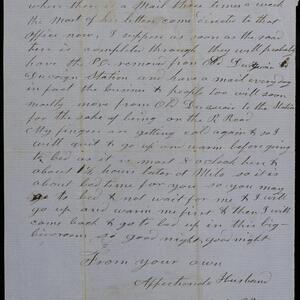 when there is a Mail three times a week
the most of his letters come directe to that
Office now, I suppose as soon as the rail
is completed through they will probably
have the P.O. remove from Old Duquoin to
Duquoin Station and have a mail every day
in fact the business & people too will soon
mostly move from Old Duquoin to the Station
for the sake of being on the R Road
My fingers are getting cold again & so I
will quit & go up and warm before going
to bed as it is most 8 oclock here &
about 1½ hours later at Milo so it is
about bed time for you so you may
go to bed & not wait for me & I will
go up and warm me first & then I will
come back & go to bed up in this big
so good night, good night
From your own
Affectionate Husband